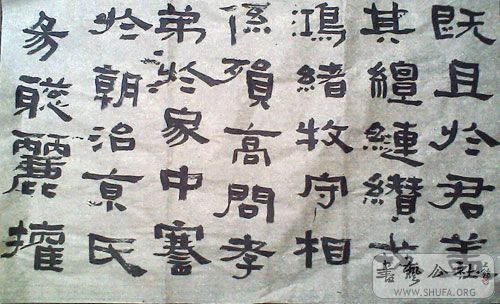 既且於君蓋
其繵縺纘戎
鴻緒牧守相
係殞高問孝
弟於家中謇
於朝治京氏
易聰麗權
書藝公社
WWW.SHUFA.ORG